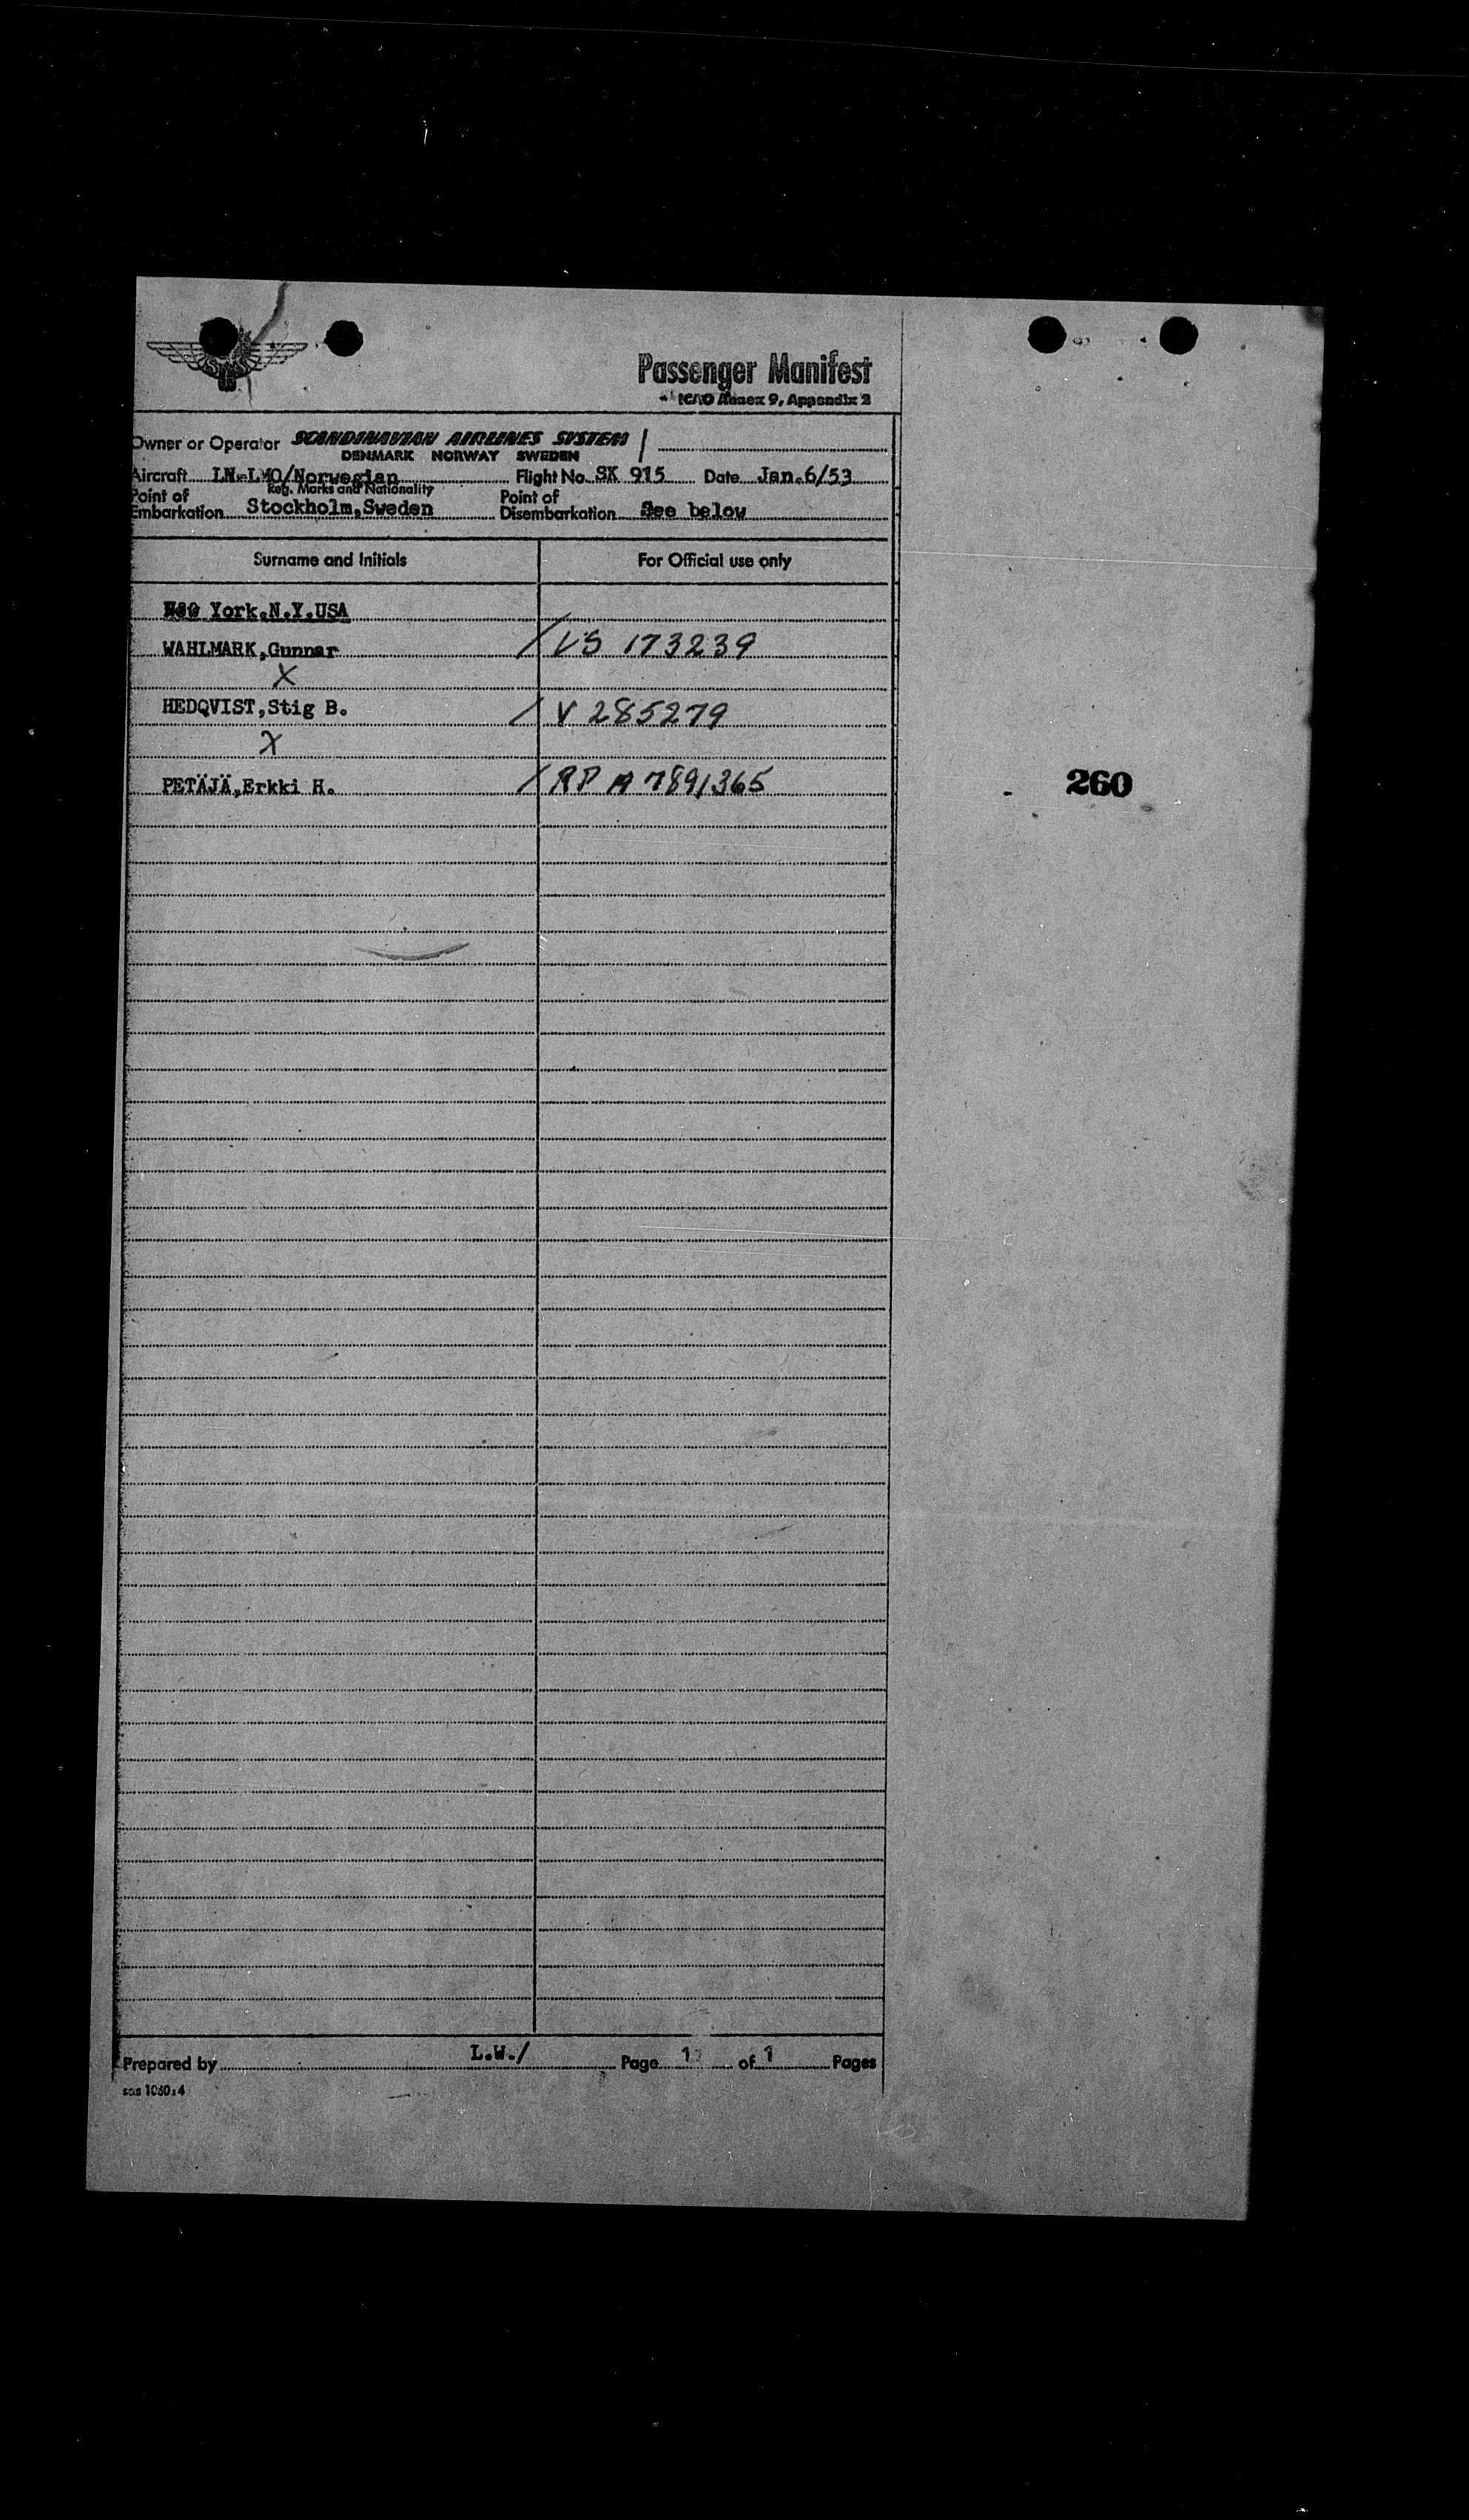 SAS
Passenger Manifest
ICAO Annex 9, Appendix 2
Owner or Operator SCANDINAVIAN AIRLINES SYSTEM /
DENMARK NORWAY SWEDEN
Aircraft LN-LMO/Norwegian Flight No. SK 915 Date Jan.6/53
Reg. Marks and Nationality
Point of Embarkation Stockholm,Sweden Point of Disembarkation See below
Surname and Initials For Official use only
New York.N.Y.USA
WAHLMARK,Gunnar / VS 173239
X
HEDQVIST,Stig B. / V 285279
X
PETÄJÄ,Erkki H. / RP A 7891365
260
Prepared by L.W./ Page 1 of 1 Pages
sas 1060:4